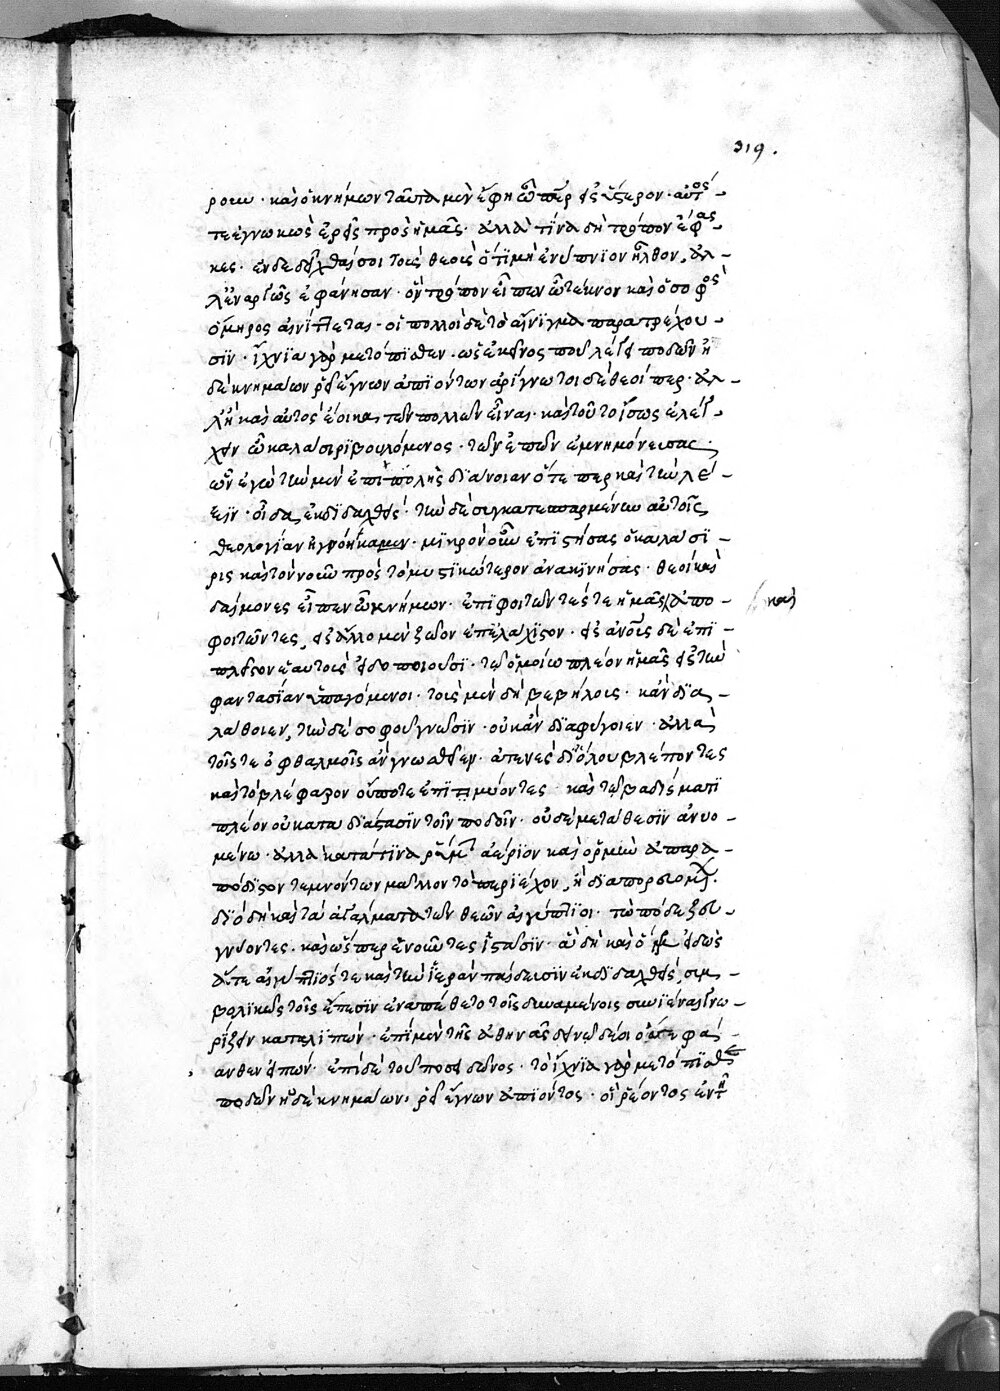 319.
ρουν· καὶ ὁ κνήμων ταῦτα μὲν ἔφη ὦ πάτερ εἰς ὕστερον· αὐτός
τε ἐγνωκὼς ἐρεῖς πρὸς ἡμᾶς· ἀλλὰ τίνα δὴ τρόπον ἔφας-
κες· ἐνδεδεῖχθαι σοι τοὺς θεοὺς ὅτι μὴ ἐνύπνιον ἦλθον, ἀλ-
λ' ἐναργῶς ἐφάνησαν· ὃν τρόπον εἶπεν ὦ τέκνον καὶ ὁ σοφὸς
ὅμηρος αἰνίττεται· οἱ πολλοὶ δὲ τὸ αἴνιγμα παρατρέχου-
σιν· ἴχνια γὰρ μετόπισθεν· ὡς ἐκεῖνος που λέγει ποδῶν ἠ
δὲ κνημάων ῥεῖ ἔγνων ἀπιόντων ἀρίγνωτοι δὲ θεοί περ· ἀλ-
λ' ἦ καὶ αὐτὸς ἔοικας τῶν πολλῶν εἶναι· καὶ τοῦτο ἴσως ἐλέγ-
χειν ὦ καλάσιρι βουλόμενος· τῶν ἐπῶν ἐμνημόνευσας·
ὧν ἐγὼ τὴν μὲν ἐπιπολῆς διάνοιαν ὅτε περ καὶ τὴν λέ-
ξιν· οἶδα ἐκδιδαχθείς· τὴν δὲ συγκατεσπαρμένην αὐτοῖς
θεολογίαν ἠγνόηκα μεν· μικρὸν οὖν ἐπιστήσας ὁ καλάσι-
ρις καὶ τὸν νοῦν πρὸς τὸ μυστικώτερον ἀνακινήσας· θεοὶ καὶ
δαίμονες εἶπεν ὦ κνήμων· ἐπιφοιτῶντές τε ἡμᾶς ἀπο-
καὶ
φοιτῶντες, εἰς ἄλλο μὲν ζῶον ἐπ' ἐλάχιστον· εἰς ἀνους δὲ ἐπὶ-
πλεῖστον ἑαυτοὺς εἰδοποιοῦσι· τῷ ὁμοίῳ πλέον ἡμᾶς εἰς τὴν
φαντασίαν ὑπαγόμενοι· τοὺς μὲν δὴ βεβήλους· κἂν δια-
λάθοιεν, τὴν δὲ σοφοῦ γνῶσιν· οὐκ ἂν διαφύγοιεν· ἀλλὰ
τοῖς τε ὀφθαλμοῖς ἂν γνωσθεῖεν· ἀτενὲς δι' ὅλου βλέποντες
καὶ τὸ βλέφαρον οὔποτε ἐπιμύοντες· καὶ τῷ βαδίσματι
πλέον οὐ κατὰ διάστασιν τοῖν ποδοῖν· οὐδὲ μετάθεσιν ἀνυο-
μένῳ· ἀλλὰ κατά τινα ῥύμην ἀέριον καὶ ὁρμὴν ἀπαρα-
πόδιστον τεμνόντων μᾶλλον τὸ περιέχον, ἢ διαπορευομ.
διὸ δὴ καὶ τὰ ἀγάλματα τῶν θεῶν αἰγύπτιοι· τὼ πόδε ζευ-
γνύοντες· καὶ ὥσπερ ἑνοῦντες ἱστᾶσιν· ἃ δὴ καὶ ὅμηρος εἰδὼς
ἅτε αἰγύπτιός τε καὶ τὴν ἱερὰν παίδευσιν ἐκδιδαχθεὶς, συμ-
βολικῶς τοῖς ἔπεσιν ἐναπέθετο τοῖς δυναμένοις συνιέναι γνω-
ρίζειν καταλιπών· ἐπὶ μὲν τῆς ἀθηνᾶς δεινὼ δέ οἱ ὄσσε φά-
ανθεν εἰπών· ἐπὶ δὲ τοῦ ποσειδῶνος· τὸ ἴχνια γὰρ μετόπισθε
ποδῶν ἠδὲ κνημάων, ῥεῖ ἔγνων ἀπιόντος· οἷ ῥέοντος ἐν τῇ